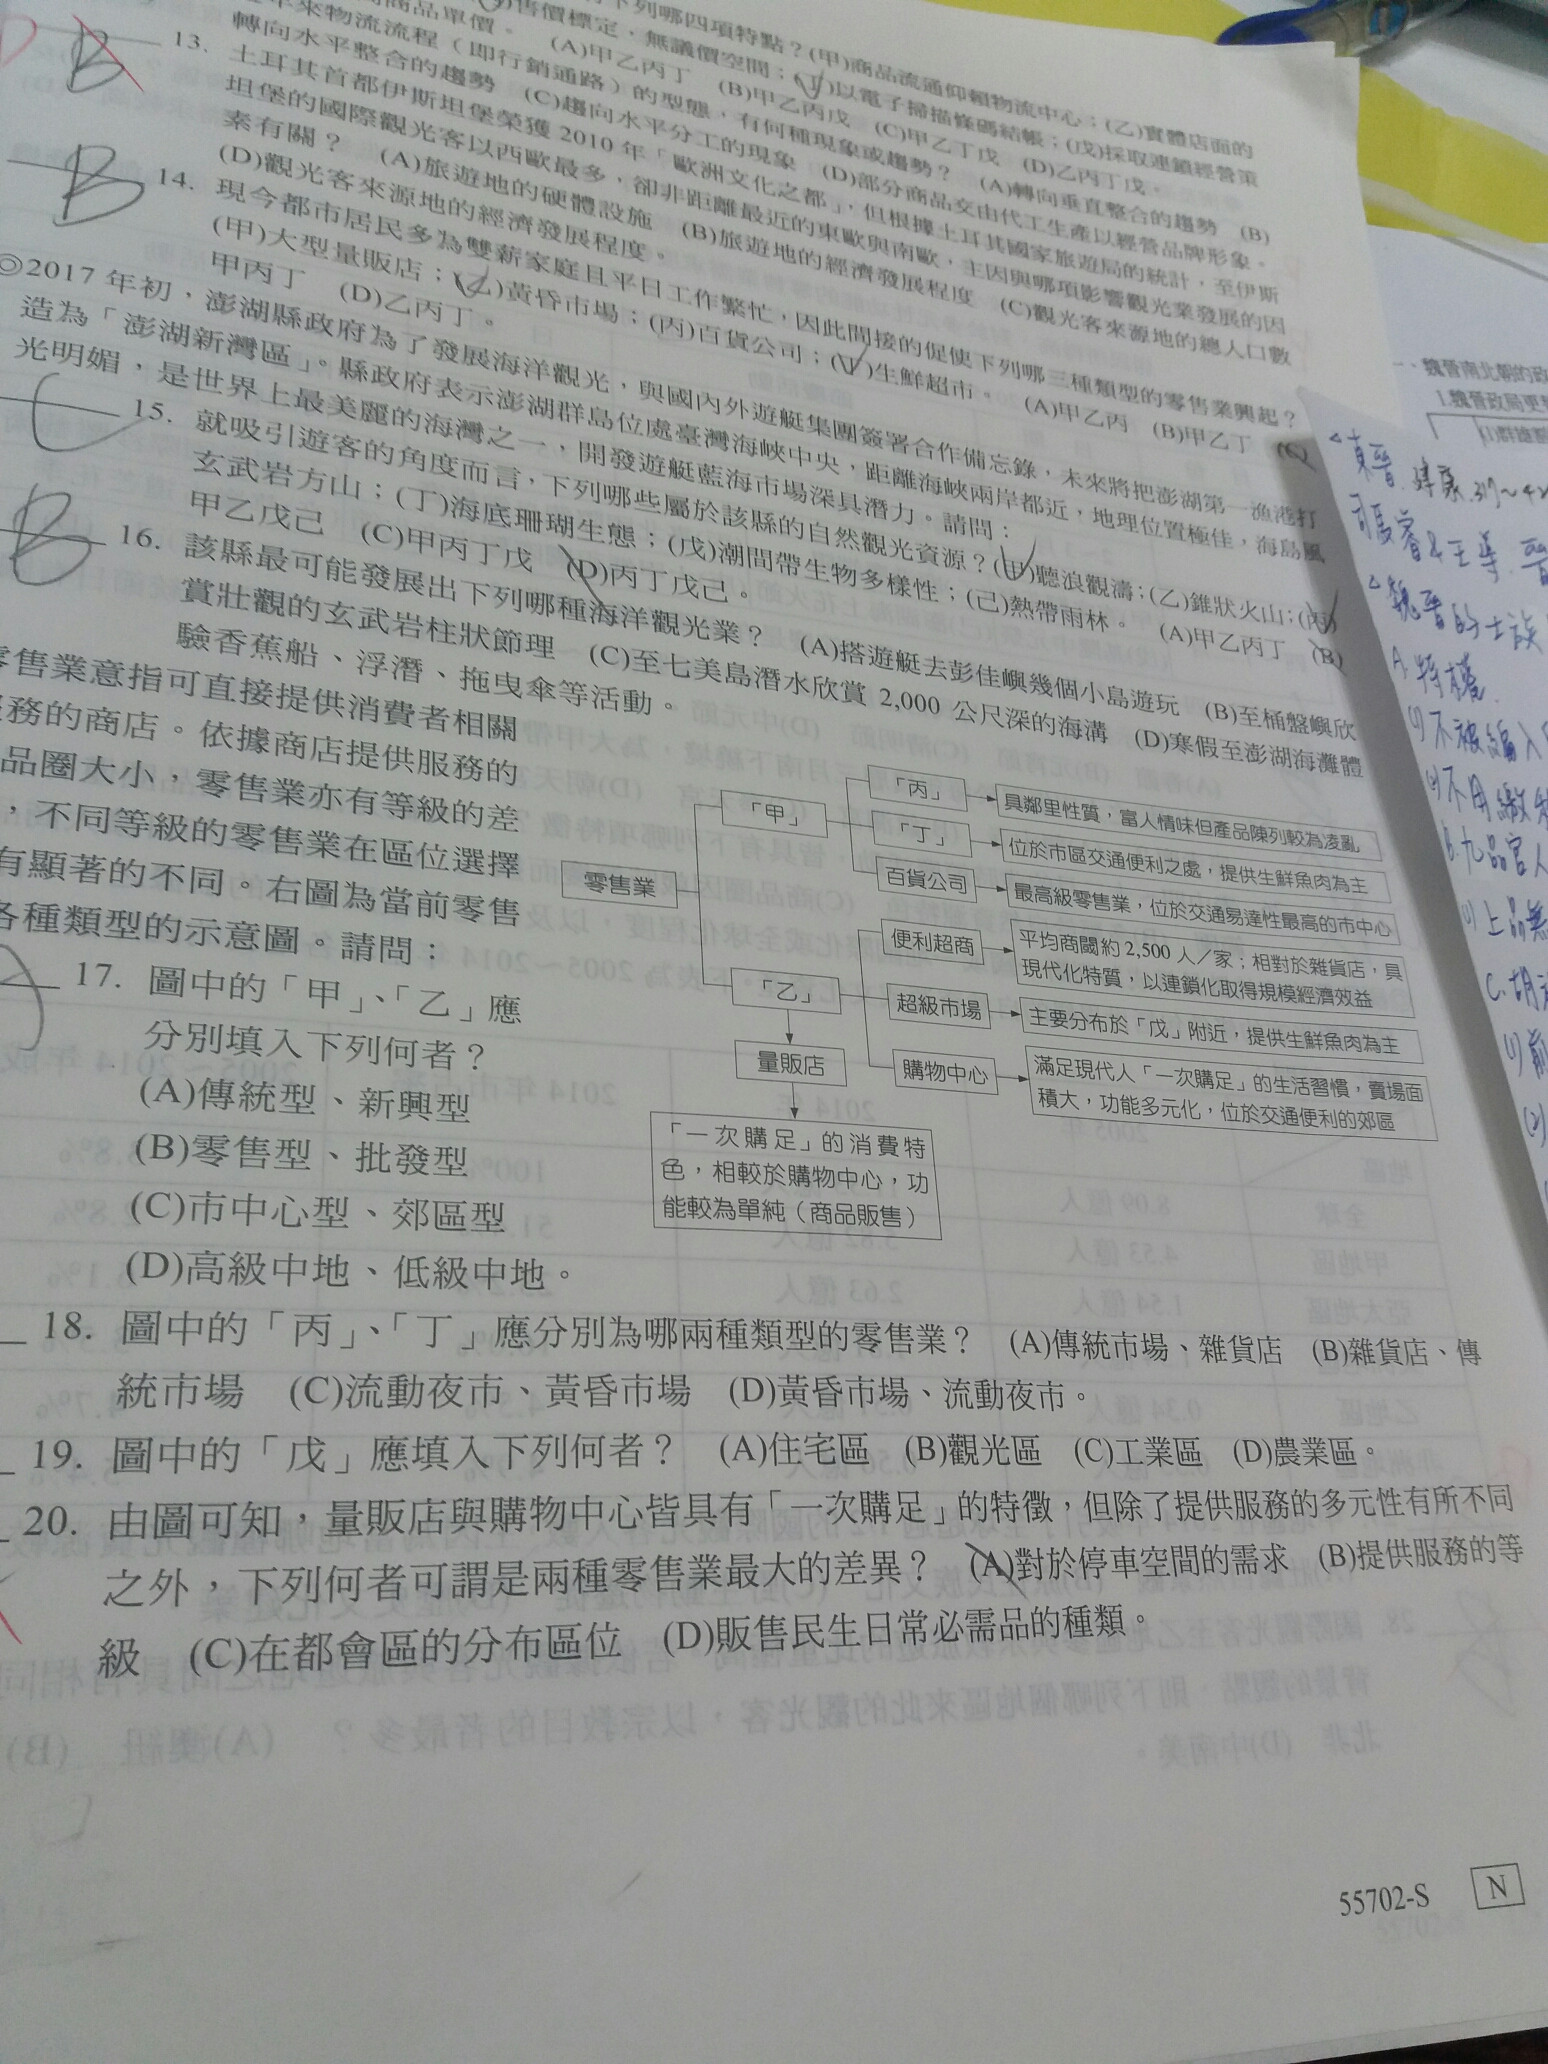 下列哪四項特點？(甲)商品流通仰賴物流中心；(乙)實體店面的
商品單價。 售價標定，無議價空間；(丁)以電子掃描條碼結帳；(戊)採取連鎖經營策
(A)甲乙丙丁 (B)甲乙丙戊 (C)甲乙丁戊 (D)乙丙丁戊。
B 年來物流流程（即行銷通路）的型態，有何種現象或趨勢？ (A)轉向垂直整合的趨勢 (B)
轉向水平整合的趨勢 (C)趨向水平分工的現象 (D)部分商品交由代工生產以經營品牌形象。
B 13. 土耳其首都伊斯坦堡榮獲 2010 年「歐洲文化之都」，但根據土耳其國家旅遊局的統計，至伊斯
坦堡的國際觀光客以西歐最多，卻非距離最近的東歐與南歐，主因與哪項影響觀光業發展的因
素有關？ (A)旅遊地的硬體設施 (B)旅遊地的經濟發展程度 (C)觀光客來源地的總人口數
(D)觀光客來源地的經濟發展程度。
B 14. 現今都市居民多為雙薪家庭且平日工作繁忙，因此間接的促使下列哪三種類型的零售業興起？
(甲)大型量販店；(乙)黃昏市場；(丙)百貨公司；(丁)生鮮超市。 (A)甲乙丙 (B)甲乙丁 (C)
甲丙丁 (D)乙丙丁。
◎2017 年初，澎湖縣政府為了發展海洋觀光，與國內外遊艇集團簽署合作備忘錄，未來將把澎湖第一漁港打
造為「澎湖新灣區」。縣政府表示澎湖群島位處臺灣海峽中央，距離海峽兩岸都近，地理位置極佳，海島風
光明媚，是世界上最美麗的海灣之一，開發遊艇藍海市場深具潛力。請問：
C 15. 就吸引遊客的角度而言，下列哪些屬於該縣的自然觀光資源？(甲)聽浪觀濤；(乙)錐狀火山；(丙)
玄武岩方山；(丁)海底珊瑚生態；(戊)潮間帶生物多樣性；(己)熱帶雨林。 (A)甲乙丙丁 (B)
甲乙戊己 (C)甲丙丁戊 (D)丙丁戊己。
B 16. 該縣最可能發展出下列哪種海洋觀光業？ (A)搭遊艇去彭佳嶼幾個小島遊玩 (B)至桶盤嶼欣
賞壯觀的玄武岩柱狀節理 (C)至七美島潛水欣賞 2,000 公尺深的海溝 (D)寒假至澎湖海灘體
驗香蕉船、浮潛、拖曳傘等活動。
零售業意指可直接提供消費者相關
服務的商店。依據商店提供服務的
品圈大小，零售業亦有等級的差
，不同等級的零售業在區位選擇
有顯著的不同。右圖為當前零售
各種類型的示意圖。請問：
17. 圖中的「甲」、「乙」應
分別填入下列何者？
(A)傳統型、新興型
(B)零售型、批發型
(C)市中心型、郊區型
(D)高級中地、低級中地。
零售業
「甲」
「丙」
具鄰里性質，富人情味但產品陳列較為凌亂
「丁」
位於市區交通便利之處，提供生鮮魚肉為主
百貨公司
最高級零售業，位於交通易達性最高的市中心
「乙」
便利超商
平均商閾約 2,500 人／家；相對於雜貨店，具
現代化特質，以連鎖化取得規模經濟效益
超級市場
主要分布於「戊」附近，提供生鮮魚肉為主
購物中心
滿足現代人「一次購足」的生活習慣，賣場面
積大，功能多元化，位於交通便利的郊區
量販店
「一次購足」的消費特
色，相較於購物中心，功
能較為單純（商品販售）
18. 圖中的「丙」、「丁」應分別為哪兩種類型的零售業？ (A)傳統市場、雜貨店 (B)雜貨店、傳
統市場 (C)流動夜市、黃昏市場 (D)黃昏市場、流動夜市。
19. 圖中的「戊」應填入下列何者？ (A)住宅區 (B)觀光區 (C)工業區 (D)農業區。
20. 由圖可知，量販店與購物中心皆具有「一次購足」的特徵，但除了提供服務的多元性有所不同
之外，下列何者可謂是兩種零售業最大的差異？ (A)對於停車空間的需求 (B)提供服務的等
級 (C)在都會區的分布區位 (D)販售民生日常必需品的種類。
55702-S N
一、魏晉南北朝的政
1.魏晉政局更
東晉.建康.317～42
司馬睿&王導.晉
魏晉的士族
A.特權
不被編入
不用繳
B.九品官人
上品無
C.胡